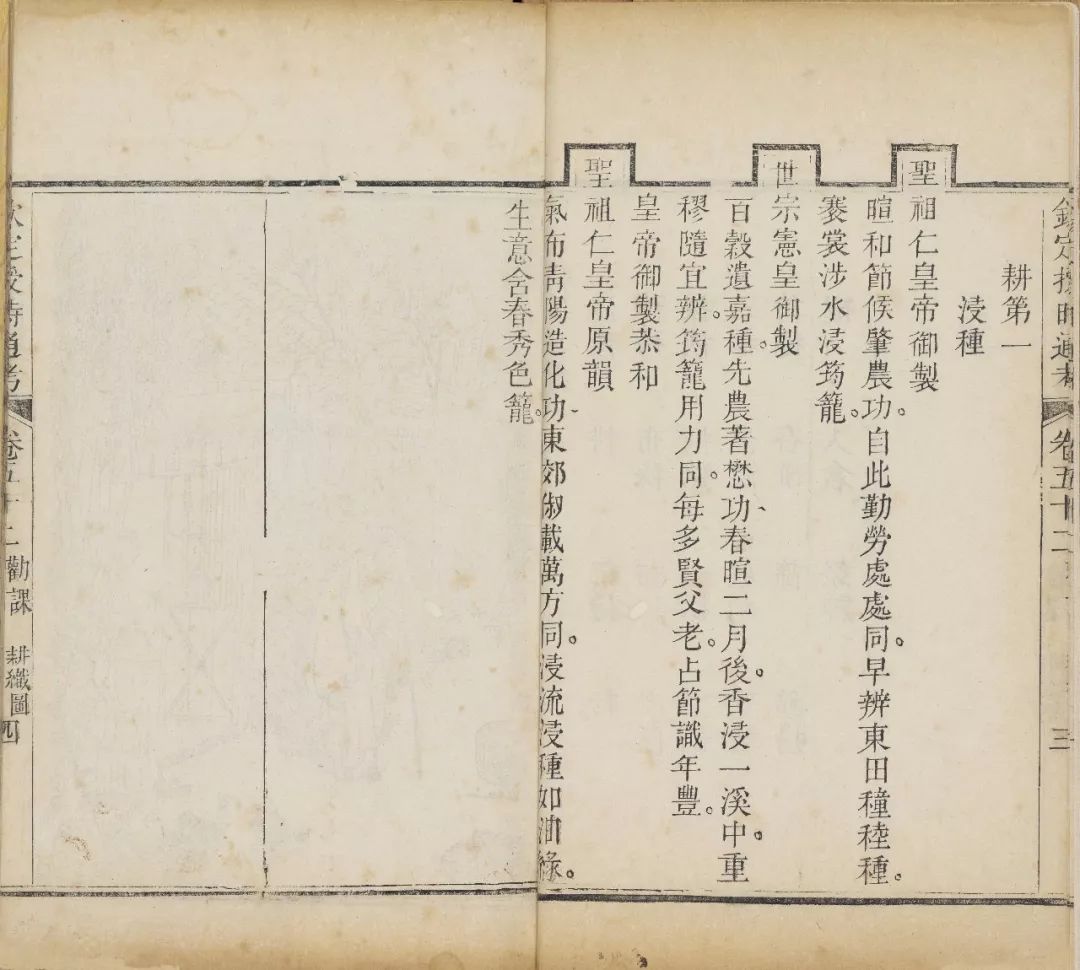 欽定授時通考 卷五十二 三
耕第一
浸種
聖祖仁皇帝御製
暄和節候肇農功。自此勤勞處處同。早辨東田穜稑種。
褰裳涉水浸筠籠。
世宗憲皇御製
百穀遺嘉種。先農著懋功、春暄二月後。香浸一溪中。重
穋隨宜辨。筠籠用力同。每多賢父老。占節識年豐。
皇帝御製恭和
聖祖仁皇帝原韻
氣布青陽造化功、東郊俶載萬方同。浸流浸種如油綠。
生意含春秀色籠。
欽定授時通考 卷五十二 勸課 耕織圖 四